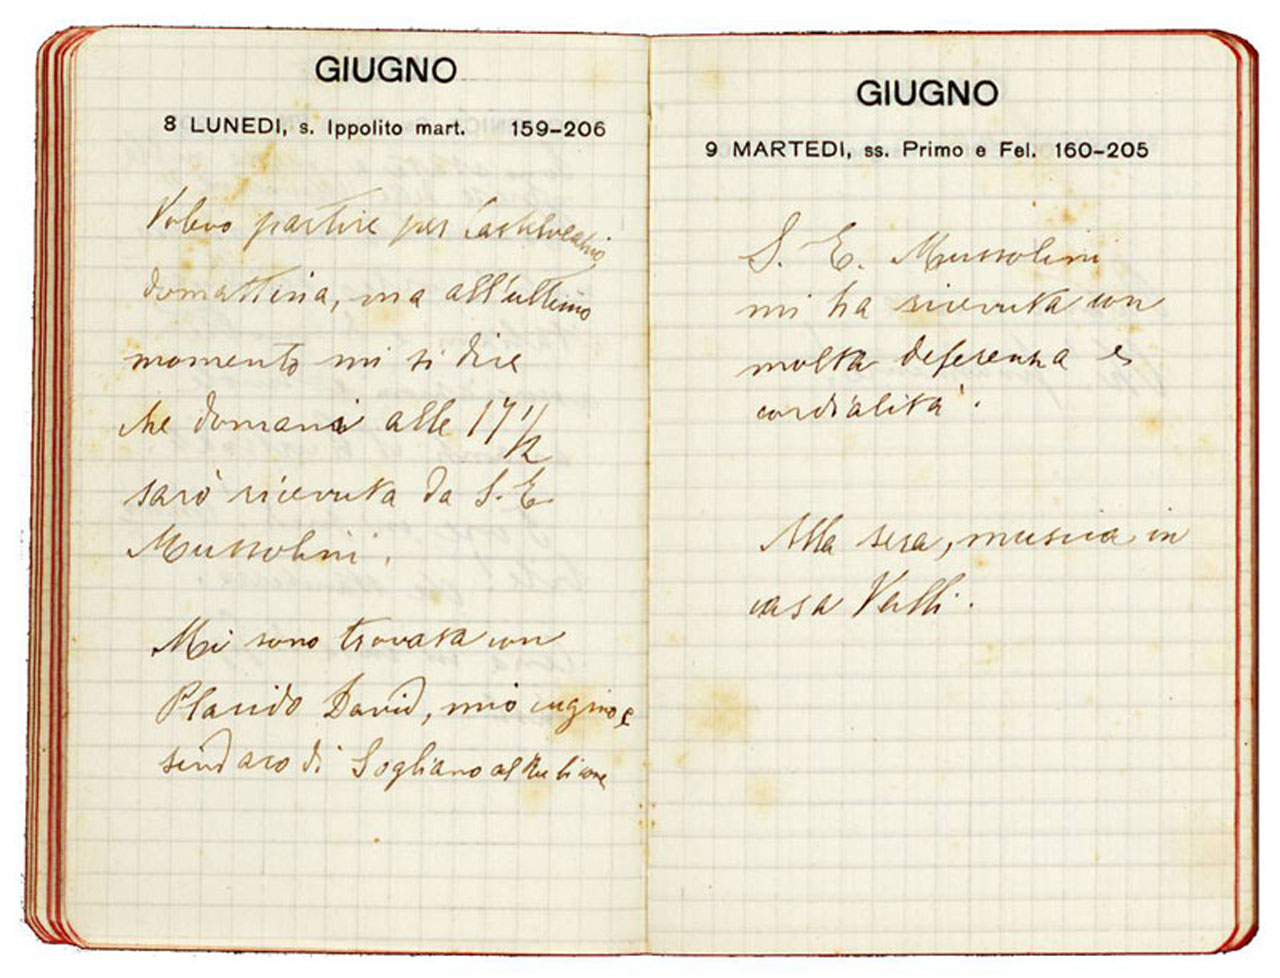 GIUGNO
8 LUNEDI, s. Ippolito mart. 159-206
Volevo partire per Castelvecchio
domattina, ma all'ultimo
momento mi si dice
che domani alle 17 1/2
sarò ricevuta da S. E.
Mussolini.
Mi sono trovata con
Placido David, mio cugino e
sindaco di Sogliano al Rubicone
GIUGNO
9 MARTEDI, ss. Primo e Fel. 160-205
S. E. Mussolini
mi ha ricevuta con
molta deferenza e
cordialità.
Alla sera, musica in
casa Valli.